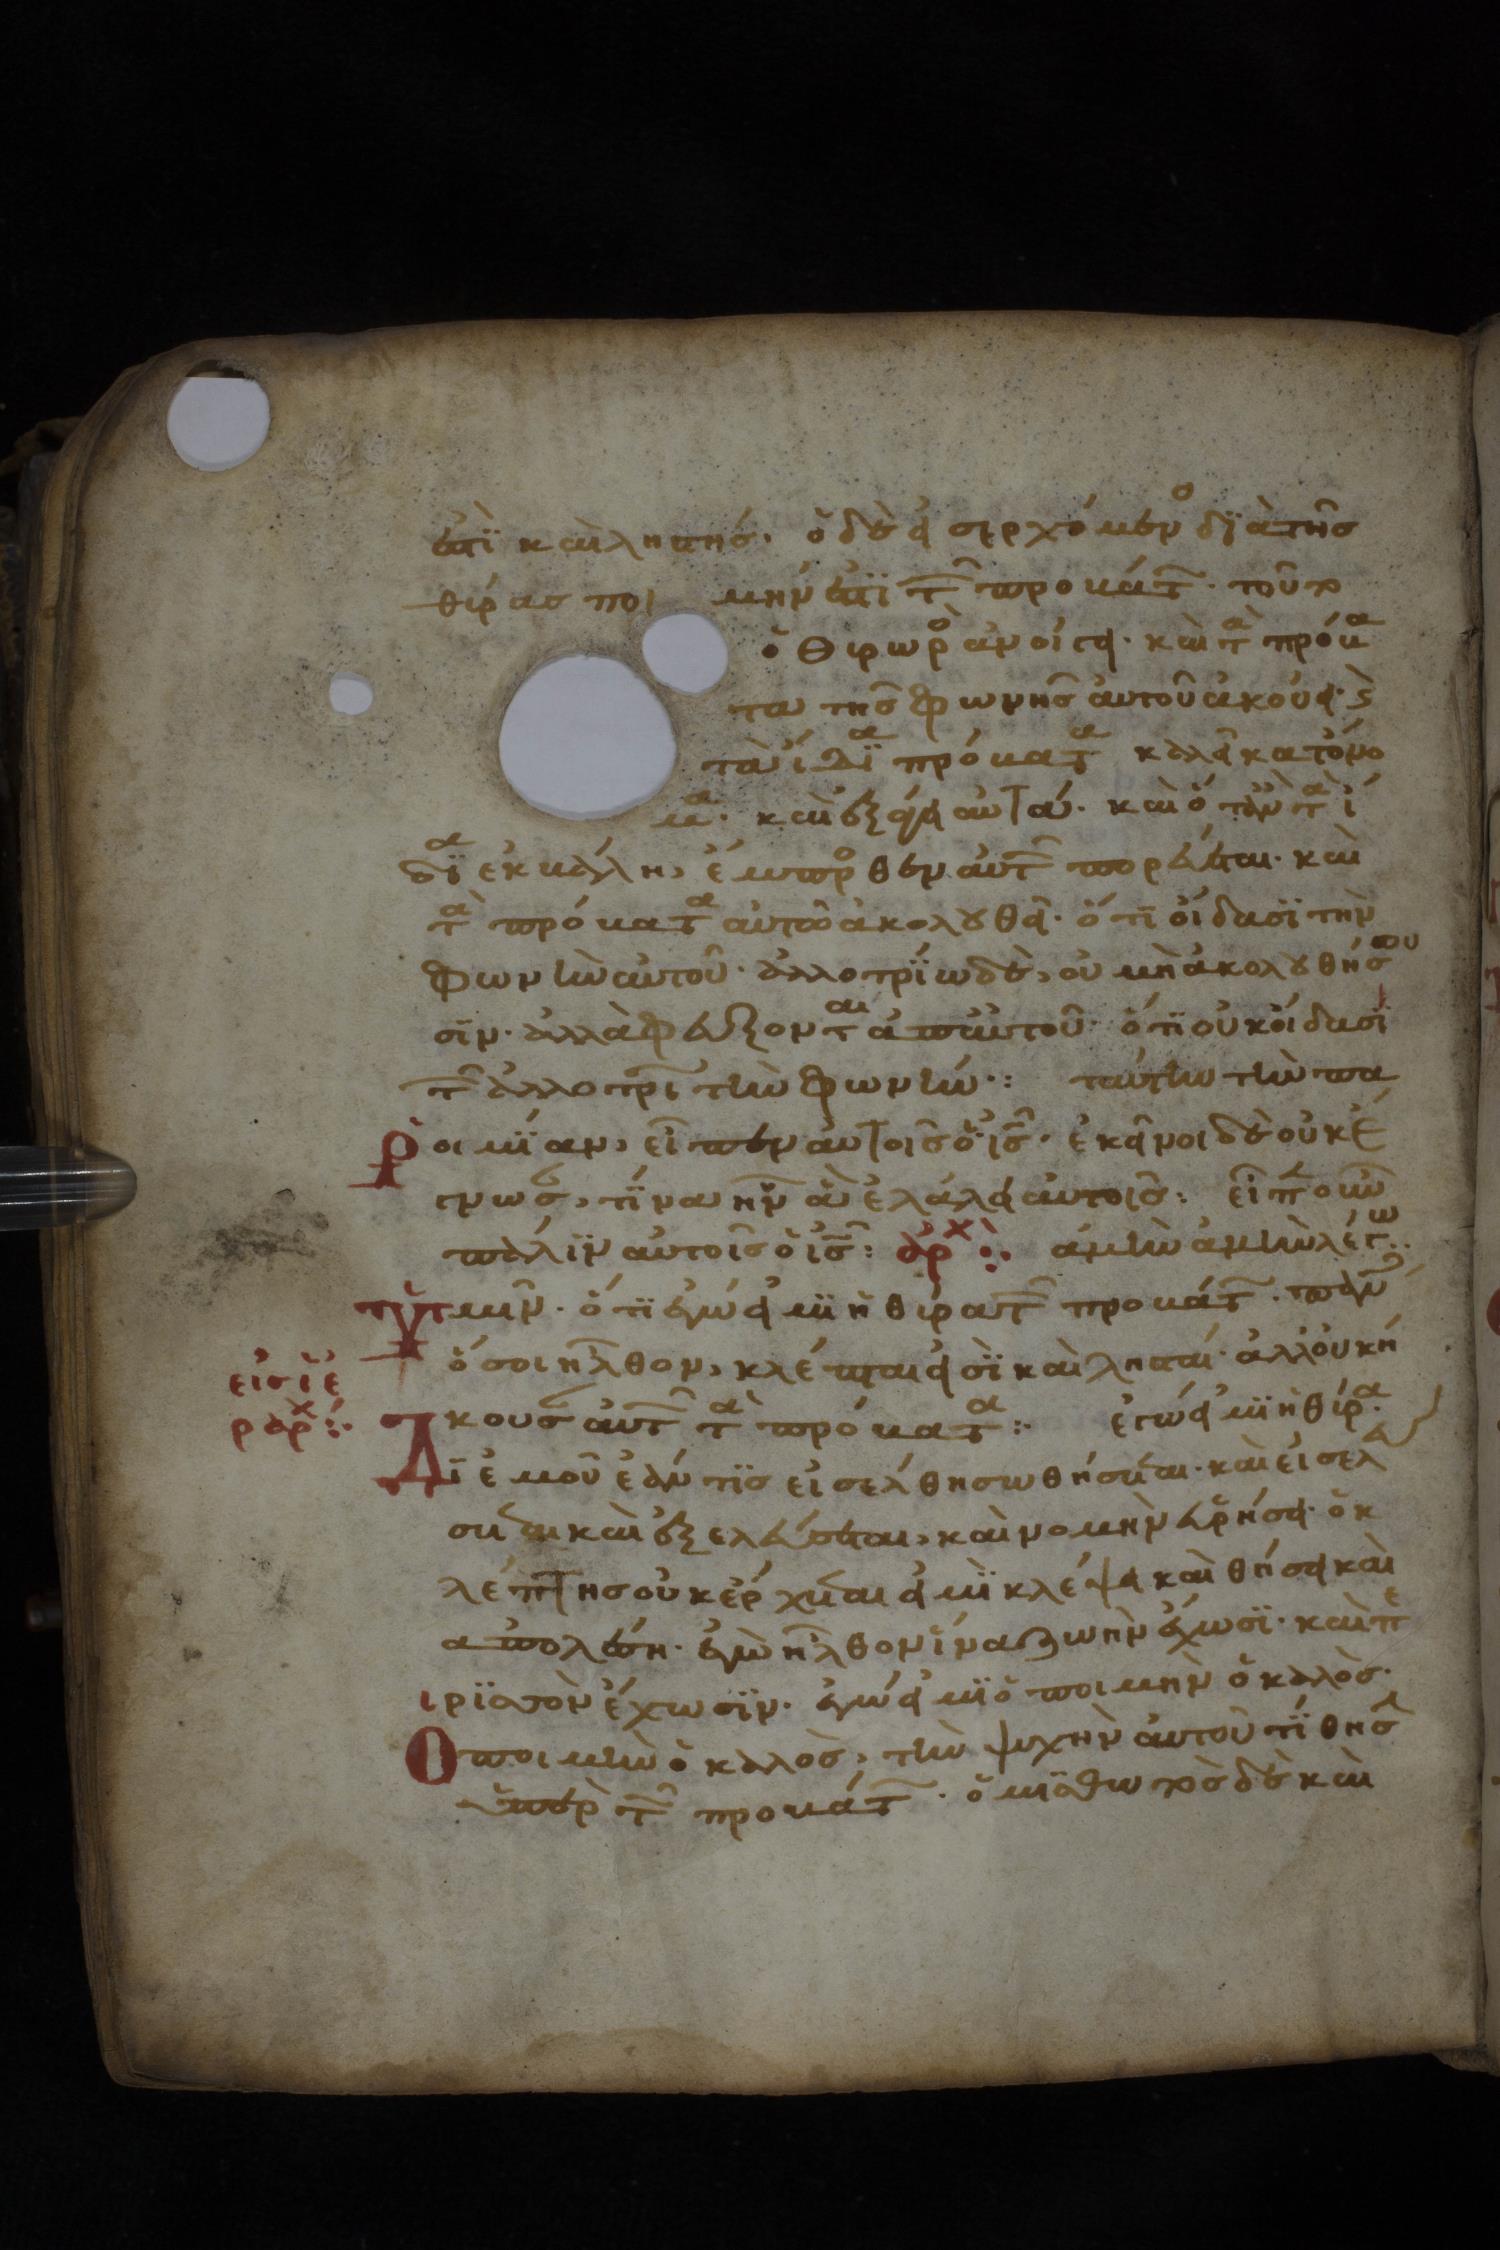 στὶ καὶ ληστής. ὁ δὲ εἰσερχόμεν διὰ τῆς
θύρας ποι μήν ἐστι τ προβάτ. τούτω
ὁ θυρωρ ἀνοίγει. καὶ τὰ πρόβα
τα τῆς φωνῆς αὐτοῦ ἀκούει. καὶ
τὰ ἴδι πρόβατ καλεῖ κατ ὄνο
μα. καὶ ἐξάγει αὐτά. καὶ ὅταν τὰ ἴ
δι ἐκβάλη, ἔμπροσθεν αὐτ πορεύεται. καὶ
τὰ πρόβατα αὐτῶ ἀκολουθεῖ. ὅτι οἴδασι τὴν
φωνὴν αὐτοῦ. ἀλλοτρίω δὲ, οὐ μὴ ἀκολουθήσου
σιν. ἀλλὰ φεύξονται ἀπ αὐτοῦ. ὅτι οὐκ οἴδασι
τ ἀλλοτρι τὴν φωνήν: ταύτην τὴν πα
ροιμίαν, εἶπεν αὐτοῖς ὁ ις. ἐκεῖνοι δὲ οὐκ ἔ
γνωσ, τίνα ἦν ἃ ἐλάλει αὐτοῖς: εἶπ οὖν
πάλιν αὐτοῖς ὁ ις: ἀρχ: ἀμὴν ἀμὴν λέγω
ὑμῖν. ὅτι ἐγώ εἰμι ἡ θύρα τ προβάτ. πάν
ὅσοι ἦλθον, κλέπται εἰσὶ καὶ λησταί. ἀλλ οὐκ ἤ
εἰς ἱε
ρ ἀρχ:
κουσ αὐτ τὰ πρόβατα: ἐγώ εἰμι ἡ θύρα.
Δι ἐμοῦ ἐάν τις εἰσέλθη σωθήσεται. καὶ εἰσελεύ
σεται καὶ ἐξελεύσεται, καὶ νομὴν εὑρήσει. ὁ κ
λέπτης οὐκ ἔρχεται εἰ μὴ κλέψει καὶ θήσει καὶ
ἀπολέση. ἐγὼ ἦλθον ἵνα ζωὴν ἔχωσι. καὶ πε
ρισσὸν ἔχωσιν. ἐγώ εἰμι ὁ ποιμὴν ὁ καλὸς.
Ὁ ποιμὴν ὁ καλὸς, τὴν ψυχὴν αὐτοῦ τίθησι
ὑπὲρ τ προβάτ. ὁ μισθωτὸς δὲ καὶ